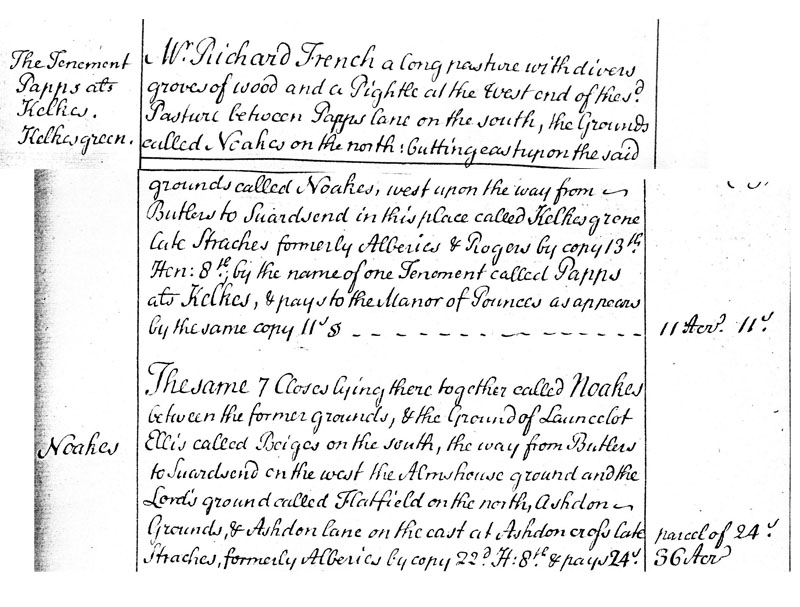 The Tenement
Papps als
Kelkes.
Kelkesgreen.
Mr. Richard French a long pasture with divers
groves of wood and a Pightle at the West end of the sd
Pasture between Papps lane on the south, the Grounds
called Noakes on the north: butting east upon the said
grounds called Noakes, west upon the way from
Butlers to Suardsend in this place called Kelkes grene
late Straches formerly Alberies & Rogers by copy 13th
Hen: 8th, by the name of one Tenement called Papps
als Kelkes, & pays to the Manor of Pounces as appears
by the same copy 11s
11 Acr. 11s.
Noakes
The same 7 Closes lying there together called Noakes
between the former grounds, & the Ground of Launcelot
Ellis called Beiges on the south, the way from Butlers
to Suardsend on the west the Almshouse ground and the
Lord's ground called Flatfield on the north, Ashdon
Grounds, & Ashdon lane on the east at Ashdon cross late
Straches, formerly Alberies by copy 22d H: 8th & pays 24s.
parcel of 24s
36 Acr